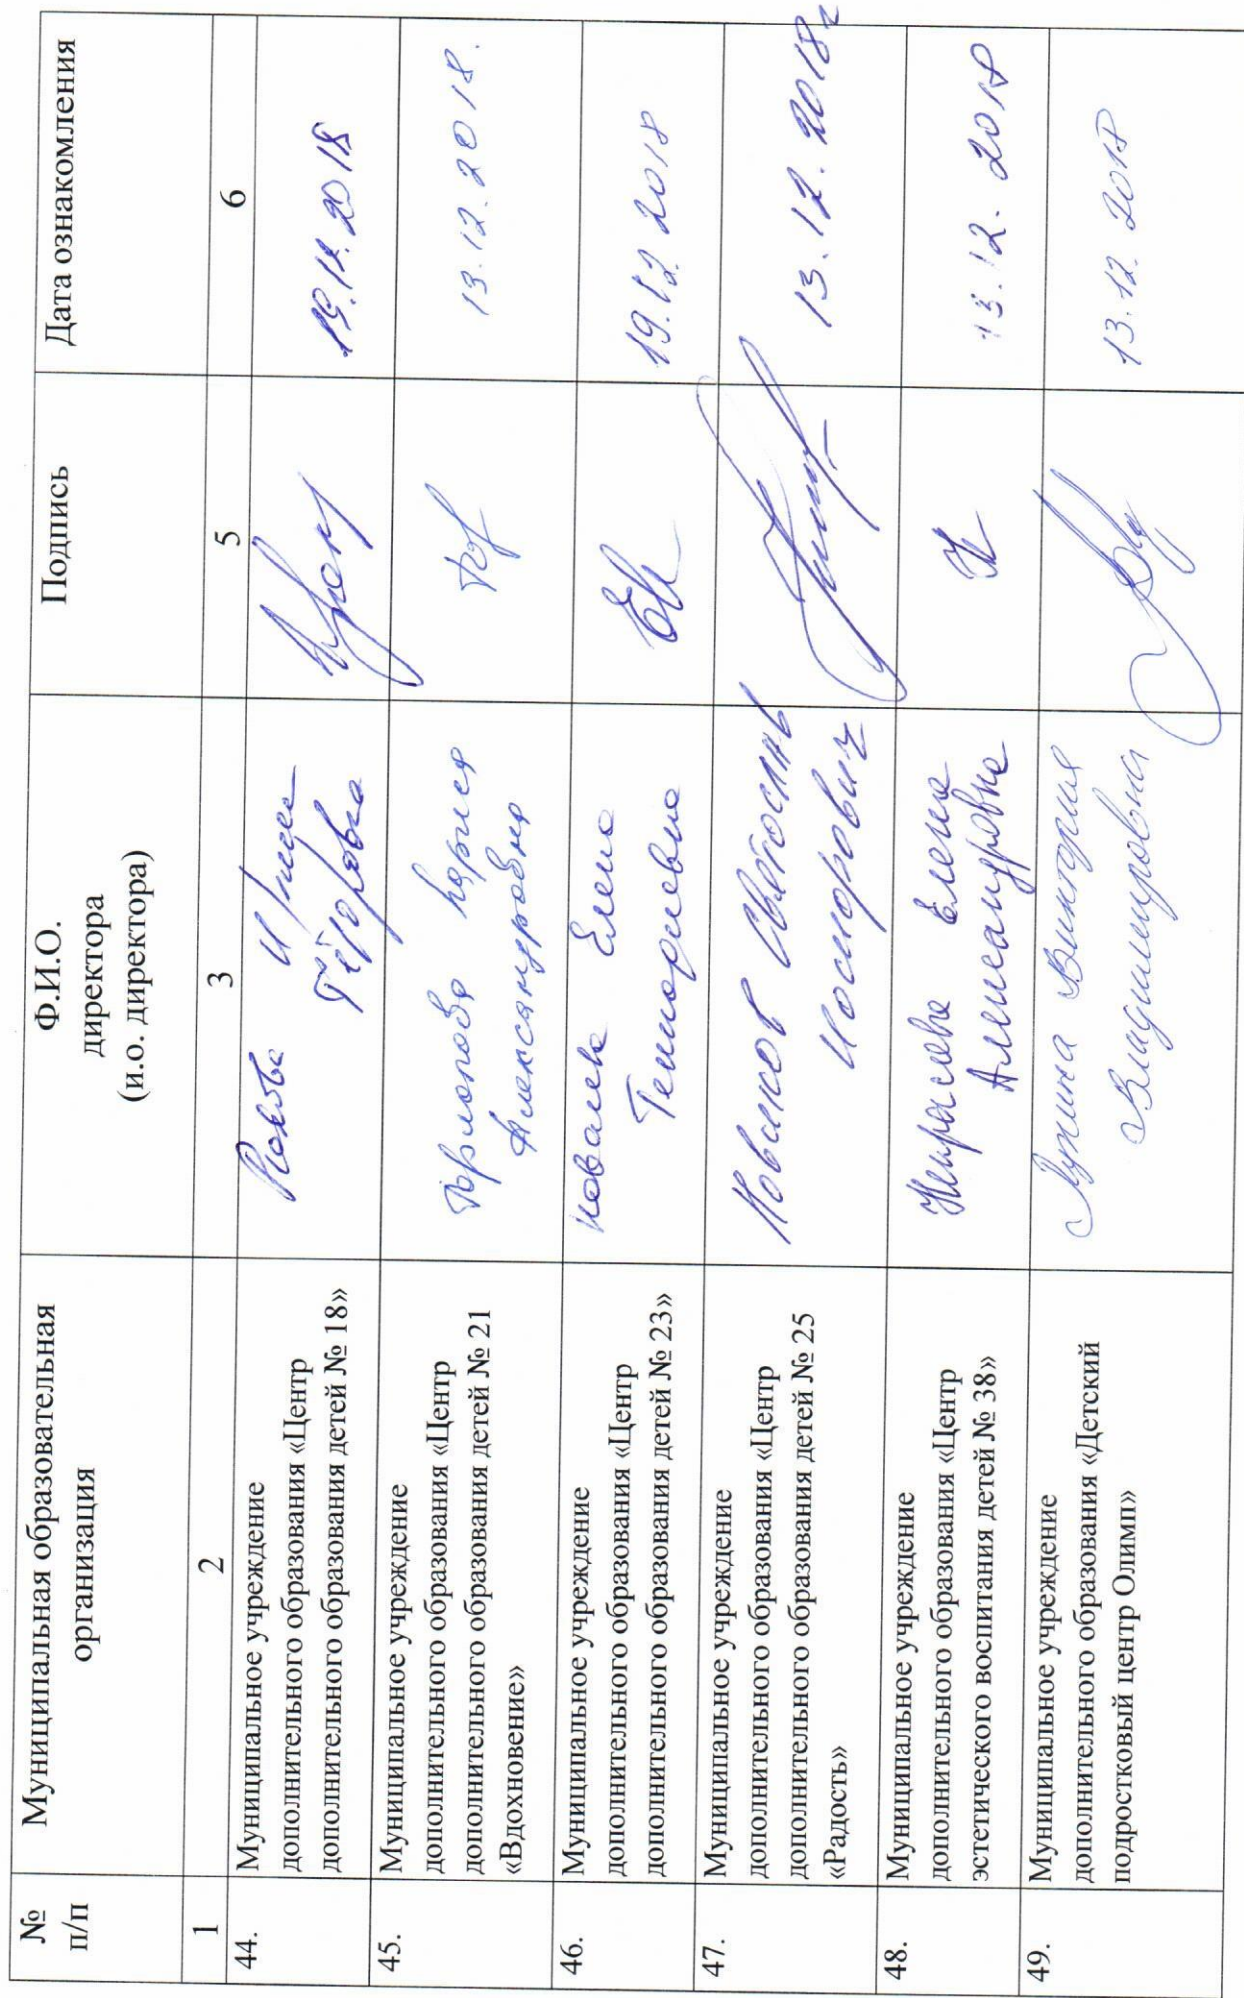 № п/п
Муниципальная образовательная
организация
Ф.И.О.
директора
(и.о. директора)
Подпись
Дата ознакомления
1 2 3 5 6
44.
Муниципальное учреждение
дополнительного образования «Центр
дополнительного образования детей № 18»
19.12.2018
45.
Муниципальное учреждение
дополнительного образования «Центр
дополнительного образования детей № 21
«Вдохновение»
Александровна
13.12.2018.
46.
Муниципальное учреждение
дополнительного образования «Центр
дополнительного образования детей № 23»
Елена
19.12 2018
47.
Муниципальное учреждение
дополнительного образования «Центр
дополнительного образования детей № 25
«Радость»
Новиков
13.12.2018г
48.
Муниципальное учреждение
дополнительного образования «Центр
эстетического воспитания детей № 38»
Елена
Александровна
13.12.2018
49.
Муниципальное учреждение
дополнительного образования «Детский
подростковый центр Олимп»
Виктория
Владимировна
13.12.2018